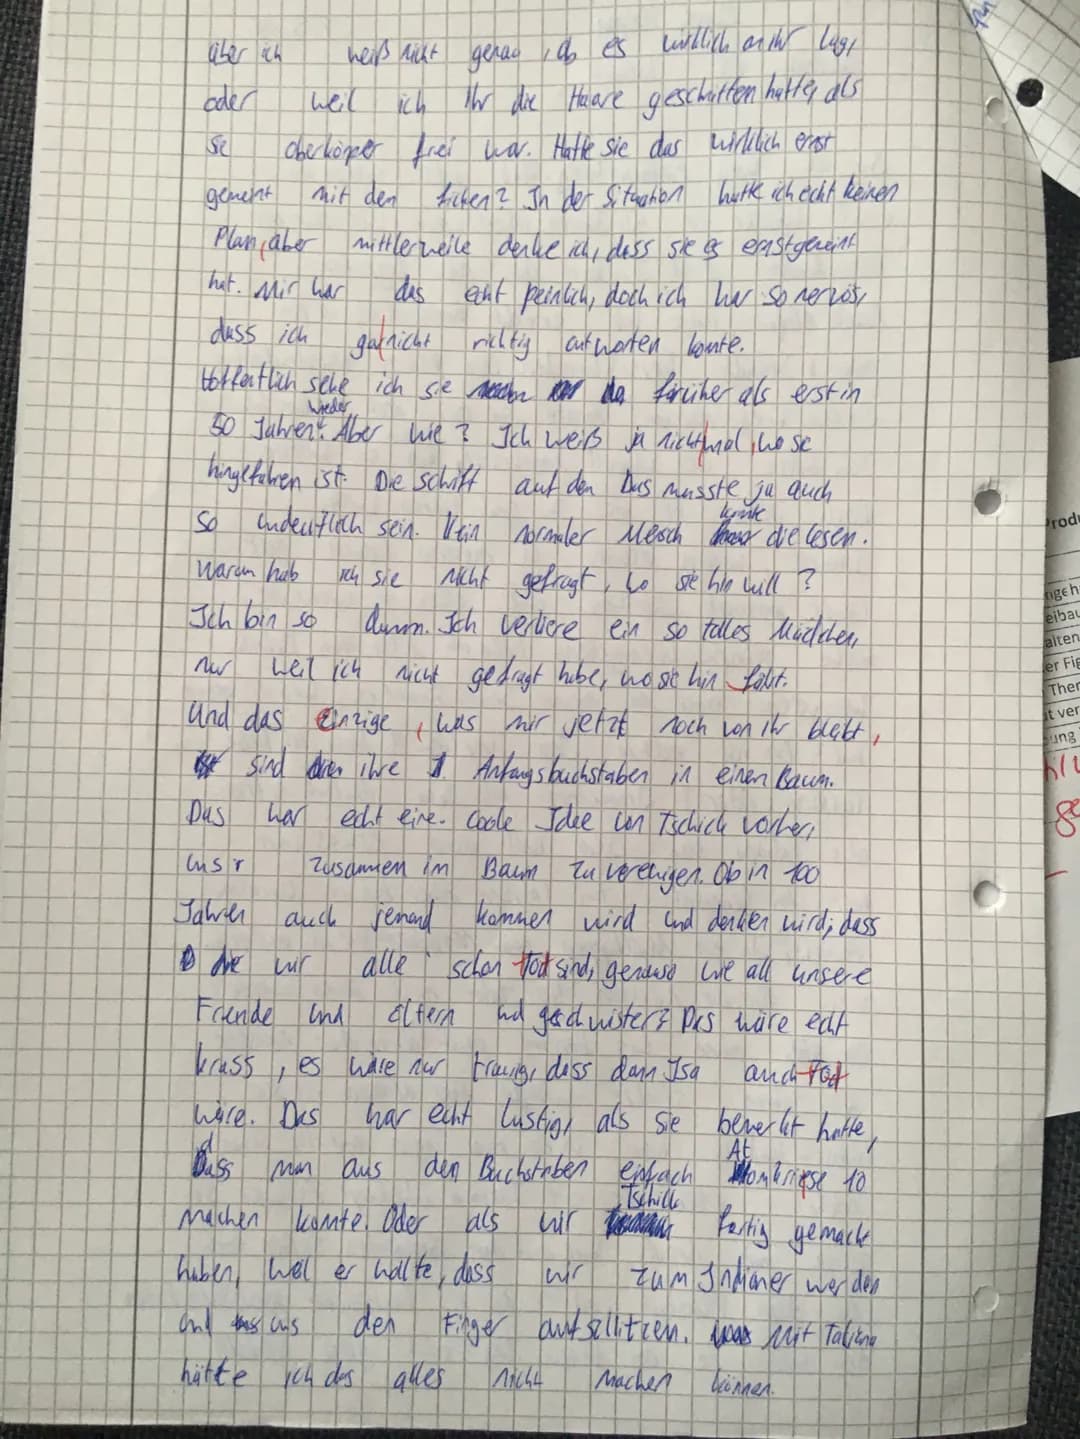 aber ich weiß nicht genau, ob es wirklich an ihr lag,
oder weil ich Ihr die Haare geschnitten hatte, als
sie oberkörper frei war. Hatte sie das wirklich ernst
gemeint mit den ficken? In der Situation hatte ich echt keinen
Plan, aber mittlerweile denke ich, dass sie es ernstgemeint
hat. Mir war das echt peinlich, doch ich war so nervös,
dass ich gar nicht richtig antworten konnte.
Hoffentlich sehe ich sie früher als erst in
50 Jahren wieder. Aber wie? Ich weiß ja nicht mal, wo sie
hingefahren ist. Die schrift auf den Bus musste ja auch
so undeutlich sein. Kein normaler Mensch konnte die lesen.
Warum hab ich sie nicht gefragt, wo sie hin will?
Ich bin so dumm. Ich verliere ein so tolles Mädchen,
nur weil ich nicht gefragt habe, wo sie hin fährt.
Und das einzige, was mir jetzt noch von ihr bleibt,
sind ihre Anfangsbuchstaben in einen Baum.
Das war echt eine coole Idee von Tschick vorher,
uns zusammen im Baum zu verewigen. Ob in 100
Jahren auch jemand kommen wird und denken wird, dass
wir alle schon Tod sind, genauso wie all unsere
Freunde und eltern und geschwister? Das wäre echt
krass, es wäre nur traurig, dass dann Isa auch Tod
wäre. Das war echt lustig, als sie bemerkt hatte,
dass man aus den Buchstaben einfach Atomkriese 10
machen konnte. Oder als wir Tschick fertig gemacht
haben, weil er wollte, dass wir zum Indianer werden
und uns den Finger aufschlitzen. Mit Tatjana
hätte ich das alles nicht machen können.
Produ